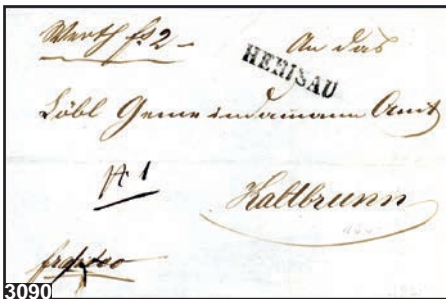 Werth fs 2 -
An das
HERISAU
Löbl Gemeindamann Amt
N 1
Kaltbrunn
franco
3090